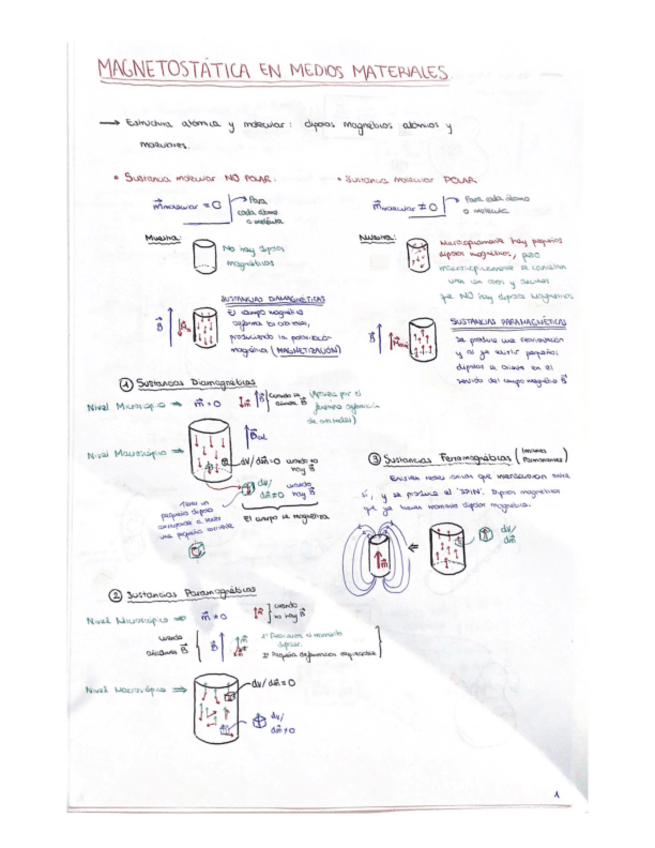 MAGNETOSTÁTICA EN MEDIOS MATERIALES
→ Estructura atómica y molecular: dipolos magnéticos atómicos y
moleculares.
• Sustancia molecular NO POLAR.
m molecular = 0
Para
cada átomo
o molécula
Muestra:
No hay dipolos
magnéticos
SUSTANCIAS DIAMAGNÉTICAS
El campo magnético
produciendo la polarización
magnética (MAGNETIZACIÓN)
B
• Sustancia molecular POLAR
m molecular ≠ 0
Para cada átomo
o molécula
Muestra:
Microscópicamente hay pequeños
dipolos magnéticos, pero
macroscópicamente se cancelan
ya NO hay dipolos magnéticos
SUSTANCIAS PARAMAGNÉTICAS
Se produce una reorientación
y al ya existir pequeños
dipolos se orientan en el
sentido del campo magnético B
B
① Sustancias Diamagnéticas
Nivel Microscópico → m = 0
cuando se
B
Nivel Macroscópico →
dv/dm = 0 cuando no
hay B
dv/
dm ≠ 0
cuando
hay B
Tiene un
pequeño dipolo
una pequeña corriente
El cuerpo se magnetiza
③ Sustancias Ferromagnéticas (Imanes
Permanentes)
sí, y se produce el 'SPIN'. Dipolos magnéticos
que ya tienen momento dipolar magnético.
m
dv/
dm
② Sustancias Paramagnéticas
Nivel Microscópico → m ≠ 0
cuando
no hay B
cuando
B
1º
el momento
dipolar.
2º Pequeña deformación
Nivel Macroscópico ⇒
dv/dm = 0
dv/
dm ≠ 0
1